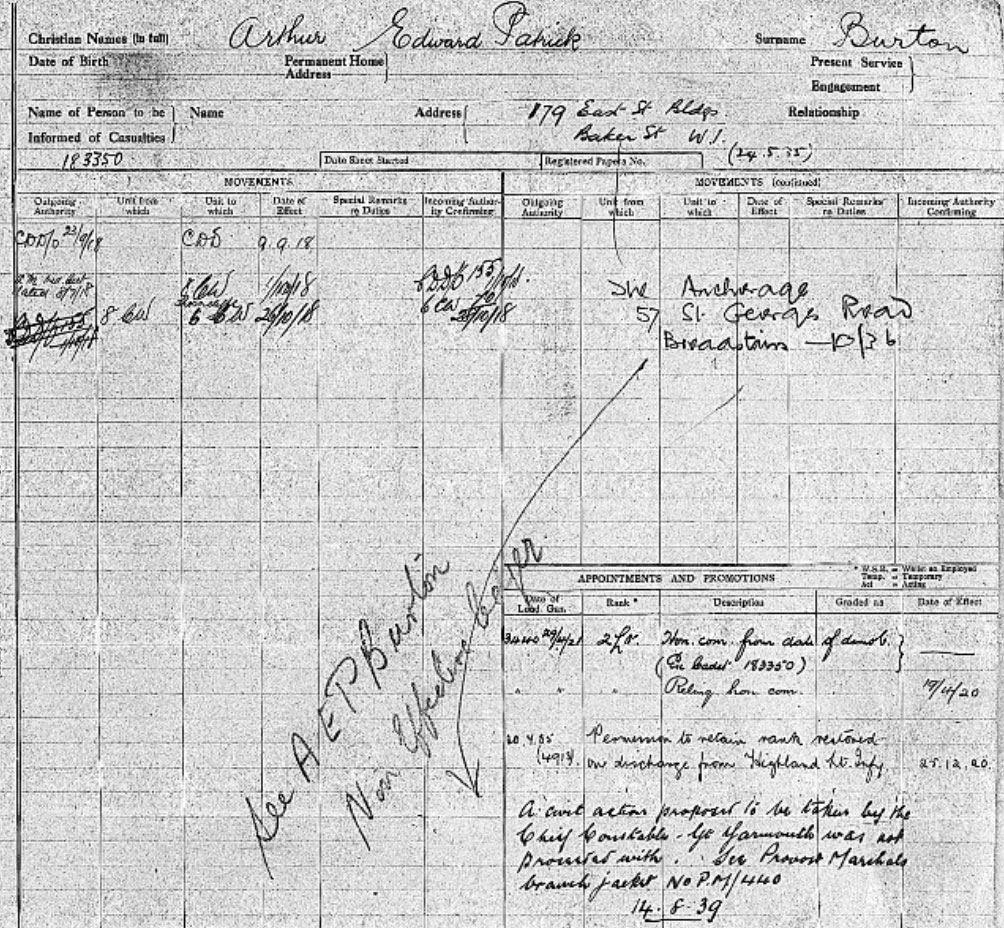 Christian Names (in full) Arthur Edward Patrick Surname Burton
Date of Birth Permanent Home Address Present Service
Engagement
Name of Person to be Informed of Casualties Name Address 179 East St Bldgs Relationship
Baker St W.1.
183350 Date Sheet Started Registered Papers No. (24.5.35)
MOVEMENTS
Outgoing Authority Unit from which Unit to which Date of Effect Special Remarks re Duties Incoming Authority Confirming
CDD/o 23/9/18 CDD 9.9.18
dated 8/7/18 8 CW 1/10/18 CDDO 155
8 CW 6 CW 26/10/18 6 CW
MOVEMENTS (continued)
Outgoing Authority Unit from which Unit to which Date of Effect Special Remarks re Duties Incoming Authority Confirming
The Anchorage
57 St. Georges Road
Broadstairs — 10/36
See A E P Burton
Non Effective
APPOINTMENTS AND PROMOTIONS
* W.S.E. = Whilst so Employed
Temp. = Temporary
Act = Acting
Date of Lond. Gaz. Rank * Description Graded as Date of Effect
29/4/21 2Lt. Hon. com. from date of demob.
(Ex Cadet 183350)
" " " Relinq hon com. 19/4/20
Permission to retain rank restored
on discharge from Highland Lt. Infy. 25.12.20.
A civil action proposed to be taken by the
Chief Constable Gt Yarmouth was not
proceeded with. See Provost Marshals
branch jacket No P.M/440
14.8.39